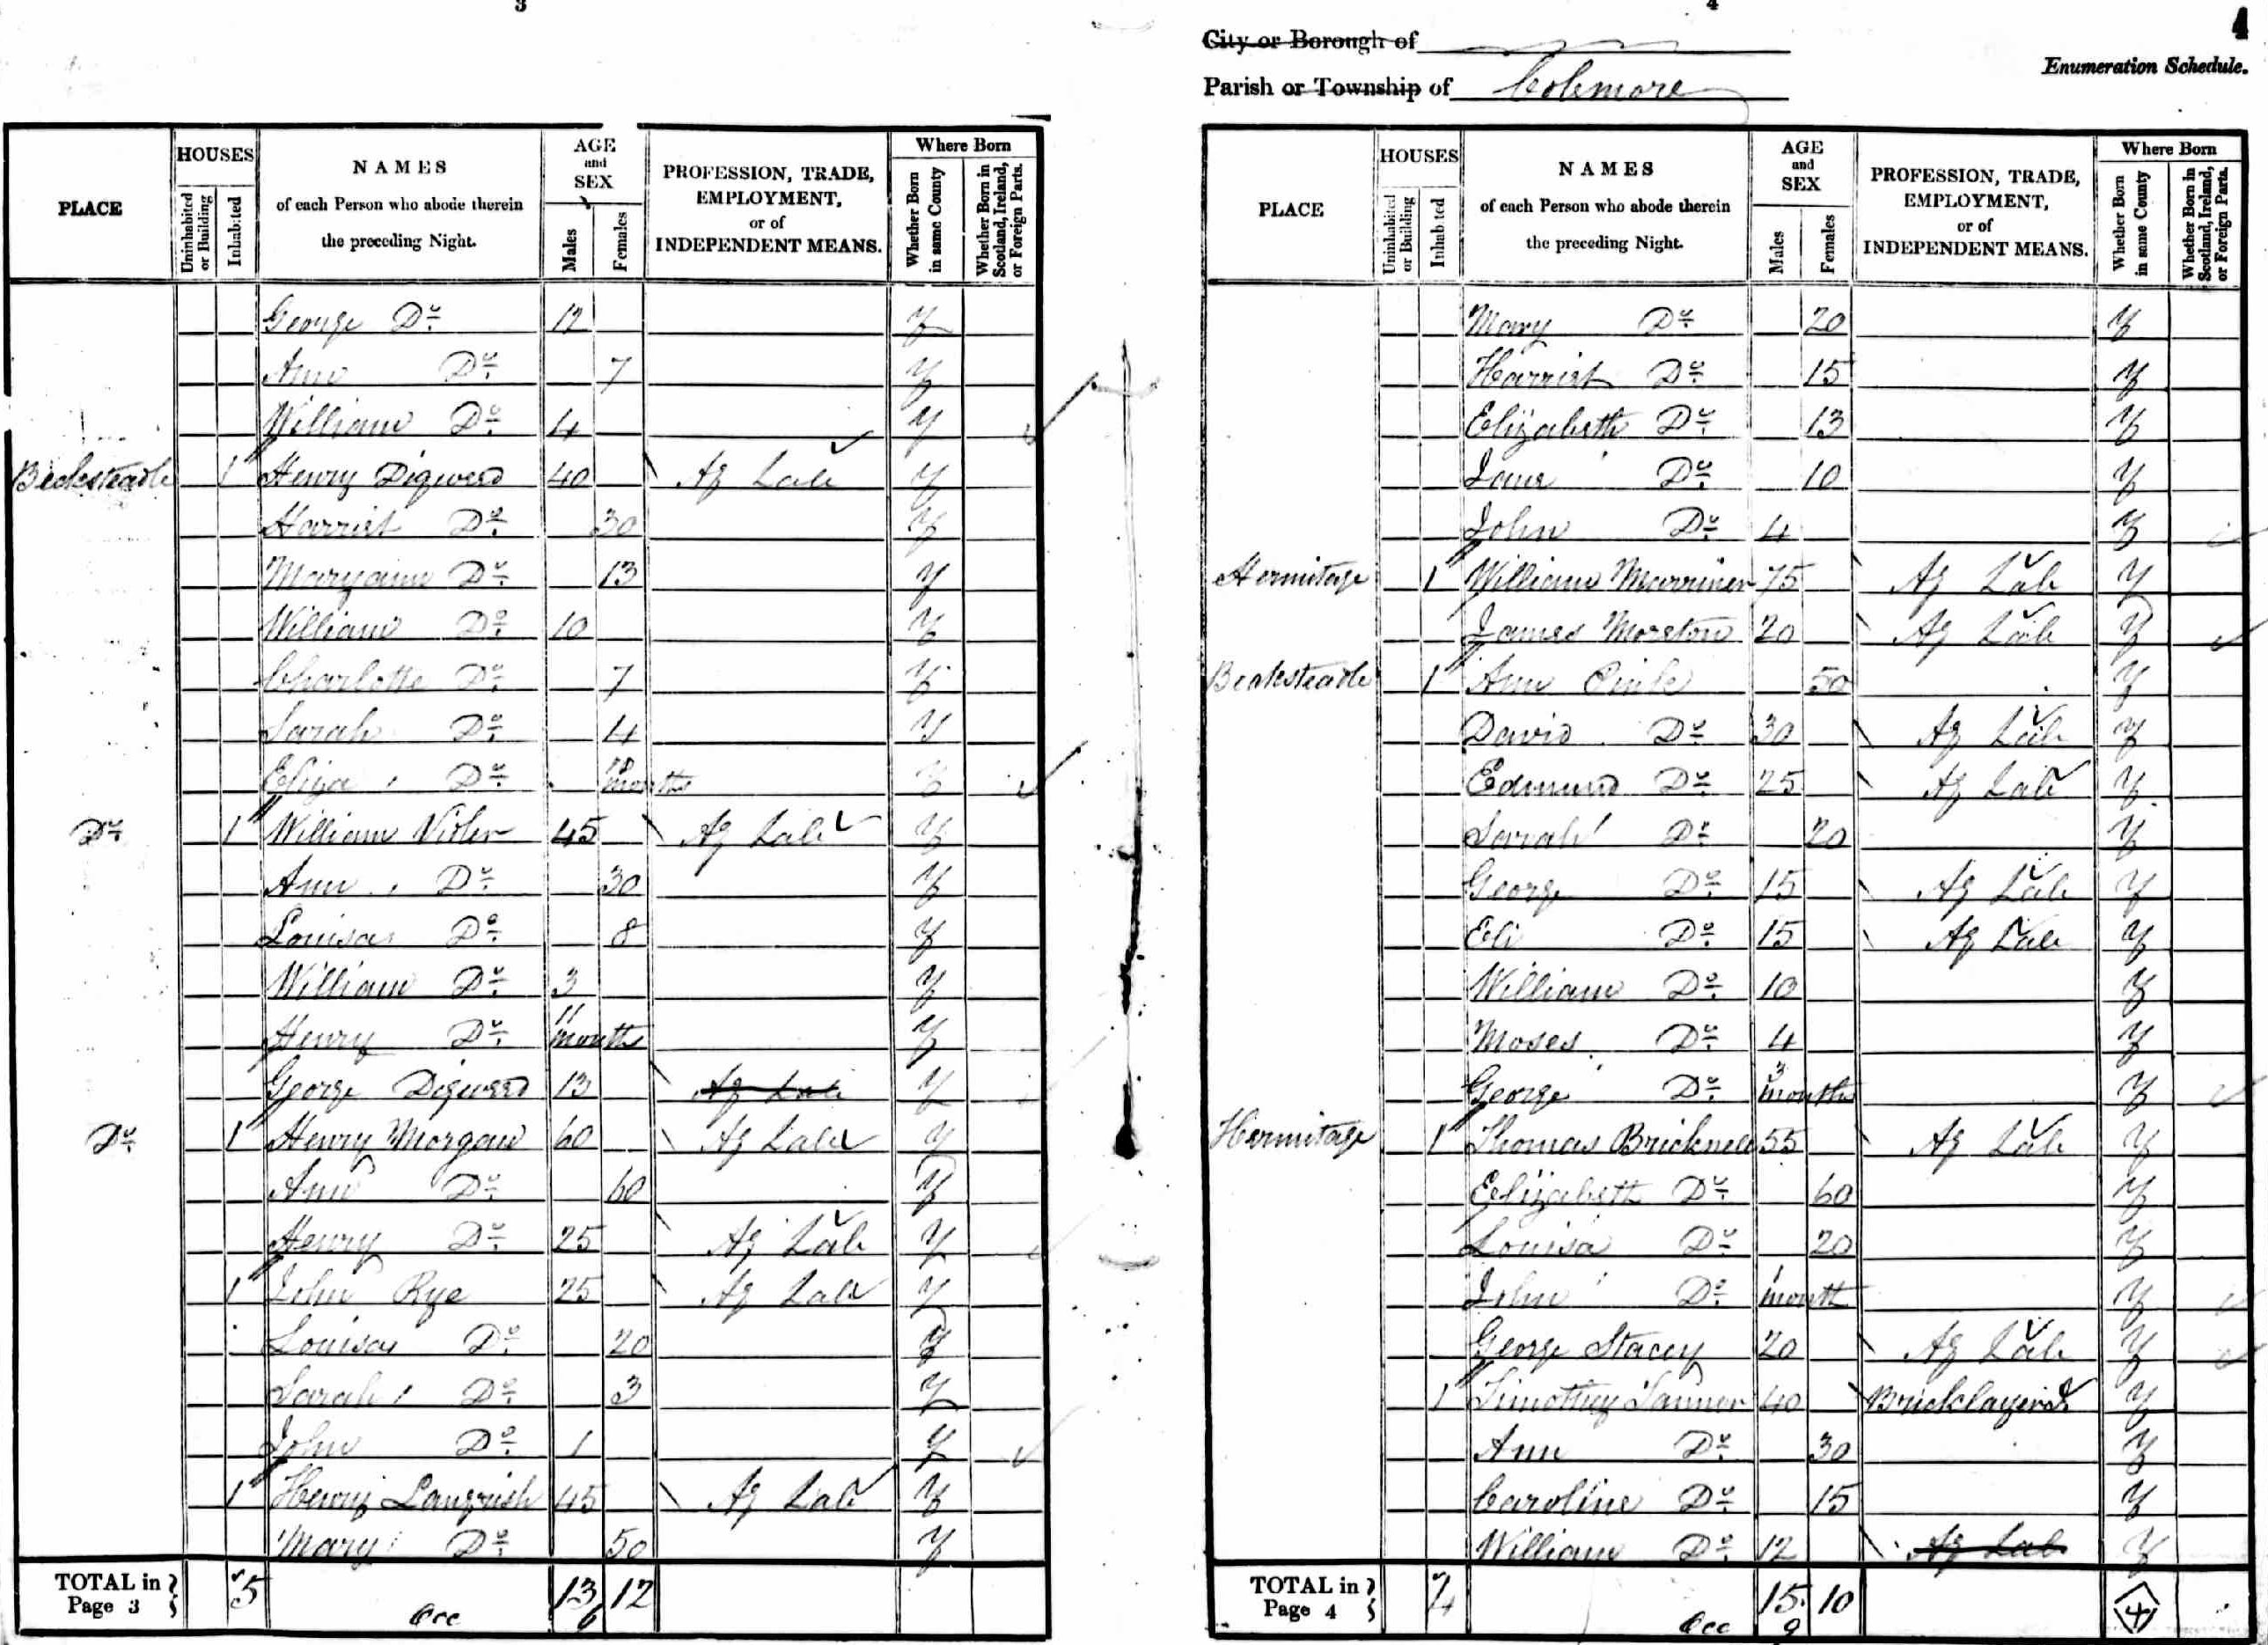 3
PLACE HOUSES Uninhabited or Building Inhabited NAMES of each Person who abode therein the preceding Night. AGE and SEX Males Females PROFESSION, TRADE, EMPLOYMENT, or of INDEPENDENT MEANS. Where Born Whether Born in same County Whether Born in Scotland, Ireland, or Foreign Parts.
George Do. 12 Y
Ann Do. 7 Y
William Do. 4 Y
1 Henry Digweed 40 Ag Lab Y
Harriet Do. 30 Y
Maryann Do. 13 Y
William Do. 10 Y
Charlotte Do. 7 Y
Sarah Do. 4 Y
Eliza Do. months Y
Do. 1 William 45 Ag Lab Y
Ann Do. 30 Y
Louisa Do. 8 Y
William Do. 3 Y
Henry Do. 11 months Y
George Digweed 13 Ag Lab Y
Do. 1 Henry Morgan 60 Ag Lab Y
Ann Do. 60 Y
Henry Do. 25 Ag Lab Y
1 John Rye 25 Ag Lab Y
Louisa Do. 20 Y
Sarah Do. 3 Y
John Do. 1 Y
1 Henry Langrish 45 Ag Lab Y
Mary Do. 50 Y
TOTAL in Page 3 5 occ 13 6 12
4
4
City or Borough of
Parish or Township of Colemore
Enumeration Schedule.
PLACE HOUSES Uninhabited or Building Inhabited NAMES of each Person who abode therein the preceding Night. AGE and SEX Males Females PROFESSION, TRADE, EMPLOYMENT, or of INDEPENDENT MEANS. Where Born Whether Born in same County Whether Born in Scotland, Ireland, or Foreign Parts.
Mary Do. 20 Y
Harriet Do. 15 Y
Elizabeth Do. 13 Y
Jane Do. 10 Y
John Do. 4 Y
Hermitage 1 William Marriner 75 Ag Lab Y
James Moreton 20 Ag Lab Y
1 Ann 50 Y
David Do. 30 Ag Lab Y
Edmund Do. 25 Ag Lab Y
Sarah Do. 20 Y
George Do. 15 Ag Lab Y
Eli Do. 15 Ag Lab Y
William Do. 10 Y
Moses Do. 4 Y
George Do. 3 months Y
Hermitage 1 Thomas Bricknell 55 Ag Lab Y
Elizabeth Do. 60 Y
Louisa Do. 20 Y
John Do. 1 month Y
George Stacey 20 Ag Lab Y
1 Timothy Tanner 40 Bricklayer Y
Ann Do. 30 Y
Caroline Do. 15 Y
William Do. 12 Ag Lab Y
TOTAL in Page 4 4 occ 15 9 10